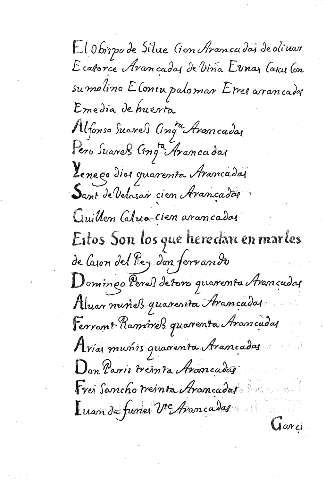 El Obispo de Silue Cien Arancadas de oliuar
E catorce Arancadas de Viña E unas Casas Con
su molino E Con su palomar E tres arancadas
E media de huerta
Alfonso Suares Cinq.ta Arancadas
Pero Suares Cinq.ta Arancadas
Yenego dias quarenta Arancadas
Sant de Velasar cien Arancadas
Guillen Calua cien arancadas
Estos Son los que heredan en martes
de Cason del Rey don ferrando
Domingo Peres de toro quarenta Arancadas
Aluar nuñes quarenta Arancadas
Ferrant Ramires quarenta Arancadas
Arias muñis quarenta Arancadas
Don Paris treinta Arancadas
Frei Sancho treinta Arancadas
Iuan de funes Vte Arancadas
Garci